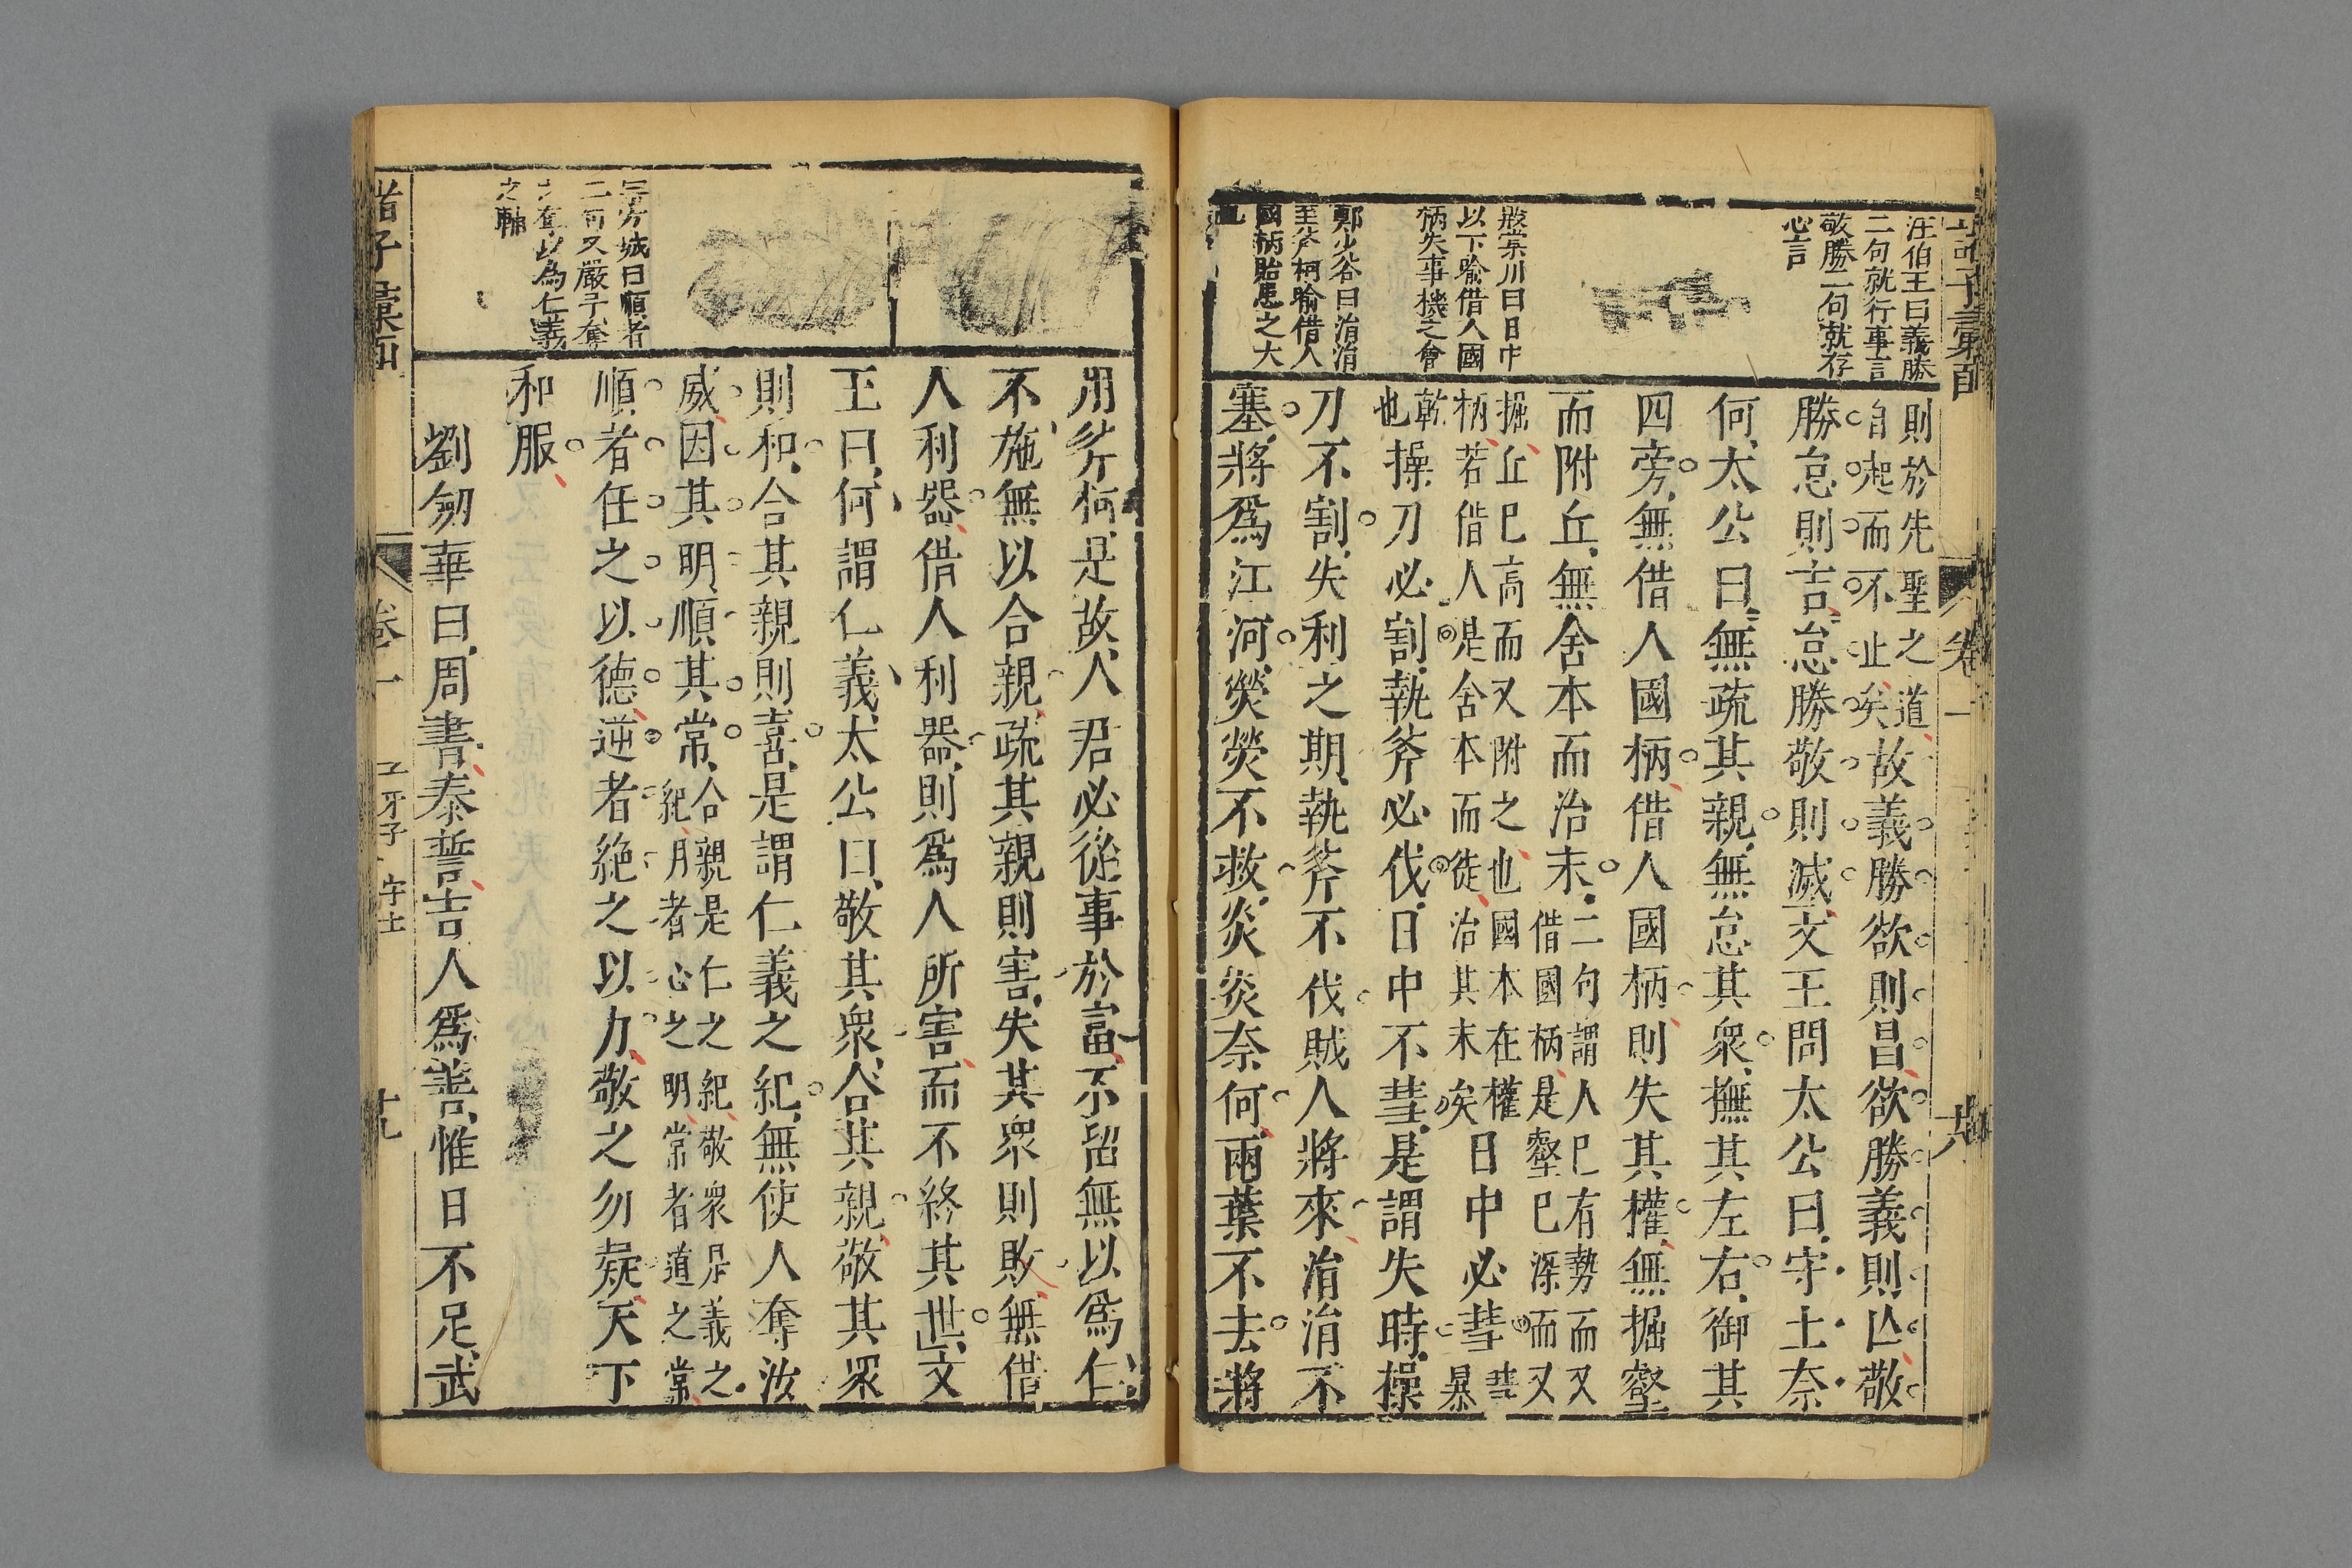 汪伯玉曰義勝
二句就行事言
敬勝二句就存
心言
以下喻借人國
柄失事機之會
鄭少谷曰涓涓
至斧柯喻借人
國柄貽患之大
則於先聖之道
自起而不止矣故義勝欲則昌欲勝義則亾敬
勝怠則吉怠勝敬則滅文王問太公曰守土奈
何太公曰無疏其親無怠其衆撫其左右御其
四旁無借人國柄借人國柄則失其權無掘壑
而附丘無舍本而治末二句謂人巳有勢而又
借國柄是壑巳深而又
掘丘巳高而又附之也國本在權
柄若借人是舍本而徒治其末矣日中必彗彗
暴
乾
也操刀必割執斧必伐日中不彗是謂失時操
刀不割失利之期執斧不伐賊人將來涓涓不
塞將爲江河熒熒不救炎炎奈何兩葉不去將
卷一
用斧柯是故人君必從事於富不富無以爲仁
不施無以合親疏其親則害失其衆則敗無借
人利器借人利器則爲人所害而不終其世文
王曰何謂仁義太公曰敬其衆合其親敬其衆
則和合其親則喜是謂仁義之紀無使人奪汝
威因其明順其常合親是仁之紀敬衆是義之
紀明者心之明常者道之常
順者任之以德逆者絶之以力敬之勿疑天下
和服
劉勿華曰周書泰誓吉人爲善惟日不足武
方城曰順者
二句又嚴子奪
以為仁義
之輔
諸子彙函
卷一
子牙子
守土
十九